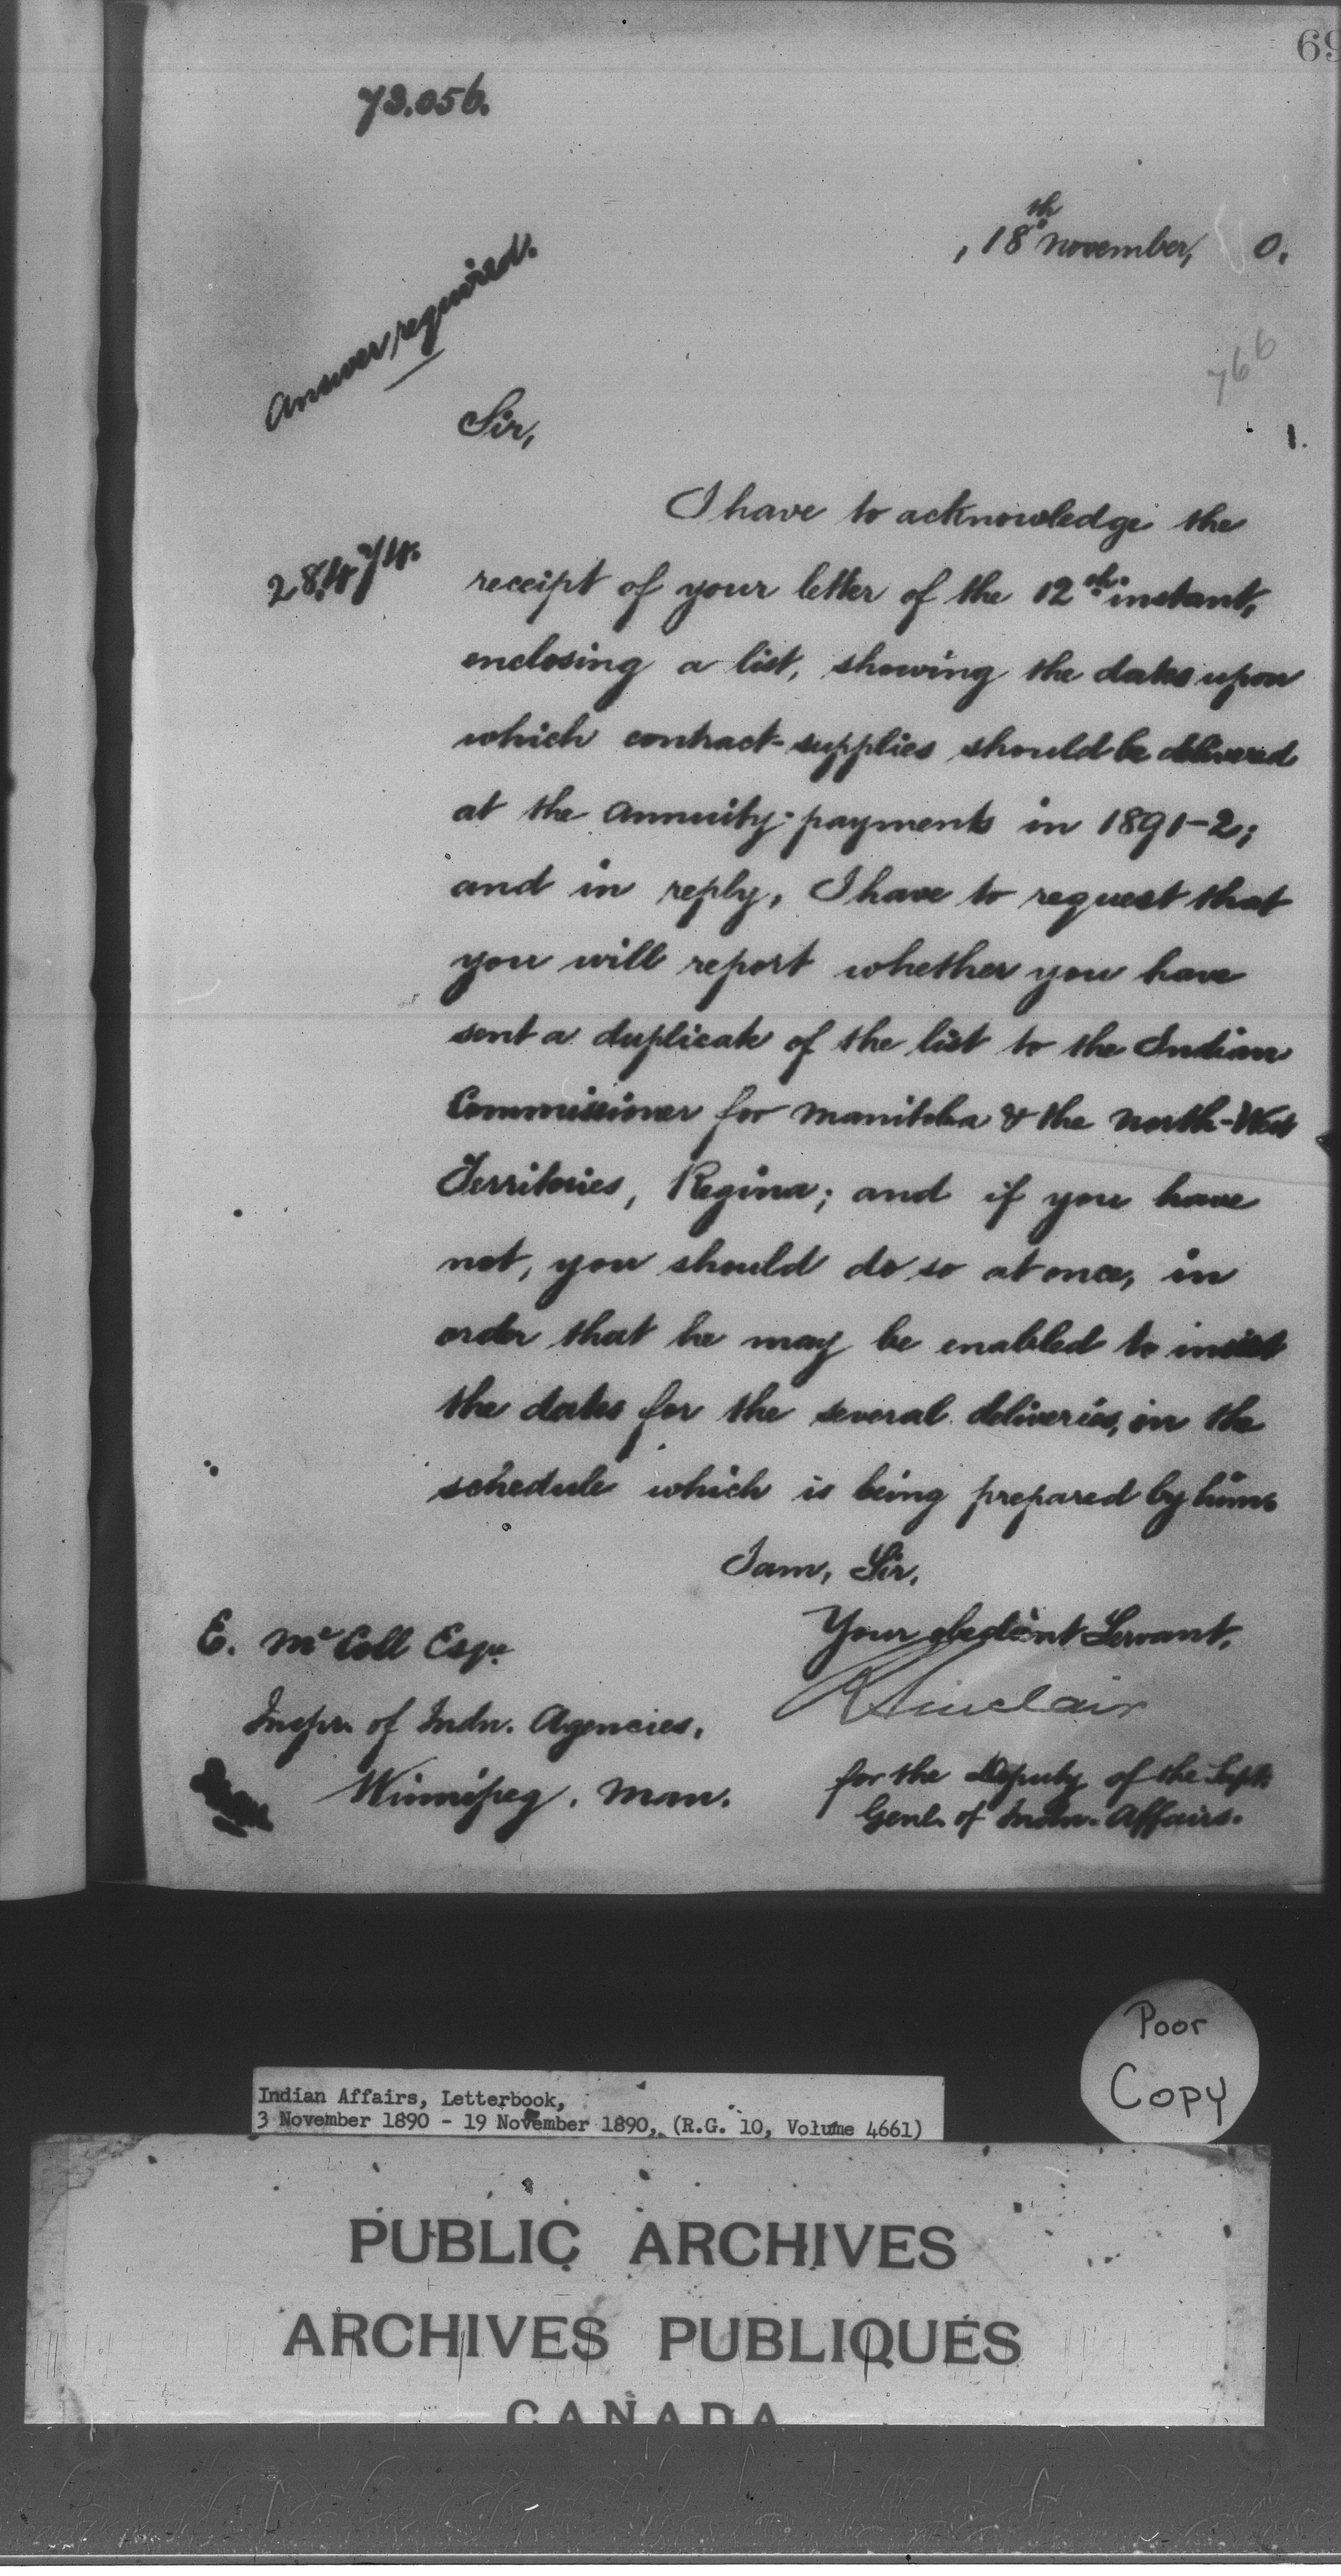 69
73.056.
, 18th November, 0.
Answer required.
766
Sir,
1.
I have to acknowledge the
28,474.
receipt of your letter of the 12th instant,
enclosing a list, showing the dates upon
which contract-supplies should be delivered
at the Annuity-payments in 1891-2;
and in reply, I have to request that
you will report whether you have
sent a duplicate of the list to the Indian
Commissioner for Manitoba & the North-West
Territories, Regina; and if you have
not, you should do so at once, in
order that he may be enabled to insert
the dates for the several deliveries, in the
schedule which is being prepared by him.
I am, Sir,
Your obedient Servant,
E. McColl Esqr.
R Sinclair
Inspr. of Indn. Agencies,
for the Deputy of the Supt.
Winnipeg, Man.
Genl. of Indn. Affairs.
Poor
Copy
Indian Affairs, Letterbook,
3 November 1890 - 19 November 1890, (R.G. 10, Volume 4661)
PUBLIC ARCHIVES
ARCHIVES PUBLIQUES
CANADA